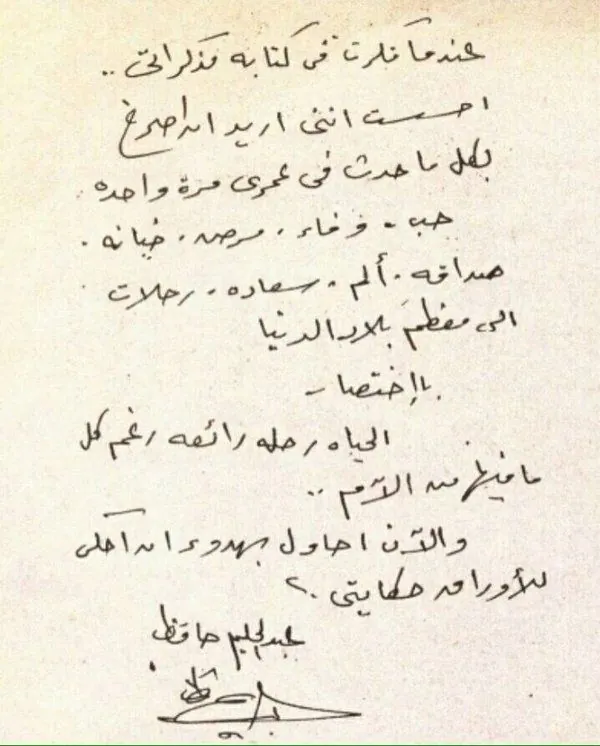 عندما فكرت فى كتابه مذكراتى ..
احسست اننى اريد ان اصرخ
بكل ما حدث فى عمرى مرة واحده
حب . وفاء . مرض . خيانه .
صداقه . ألم . سعاده . رحلات
الى معظم بلاد الدنيا
بإختصار
الحياه رحله رائعه رغم كل
ما فيها من آلام ..
والآن احاول بهدوء ان احكى
للأوراق حكايتى .
عبد الحليم حافظ